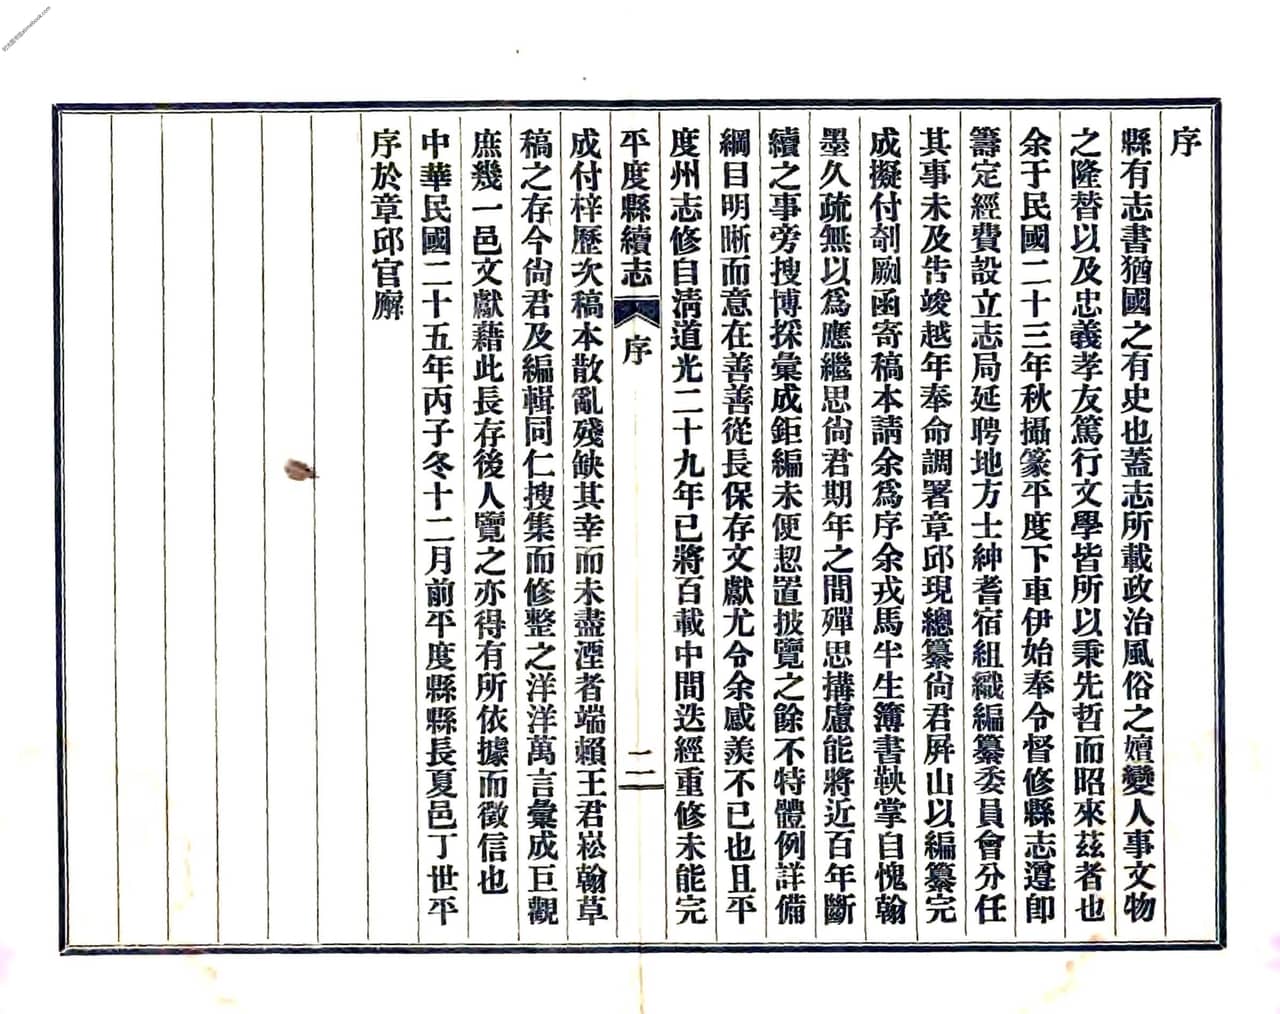 序
縣有志書猶國之有史也蓋志所載政治風俗之嬗變人事文物
之隆替以及忠義孝友篤行文學皆所以秉先哲而昭來茲者也
余于民國二十三年秋攝篆平度下車伊始奉令督修縣志遵卽
籌定經費設立志局延聘地方士紳耆宿組織編纂委員會分任
其事未及告竣越年奉命調署章邱現總纂尙君屏山以編纂完
成擬付剞劂函寄稿本請余爲序余戎馬半生簿書鞅掌自愧翰
墨久疏無以爲應繼思尙君期年之間殫思搆慮能將近百年斷
續之事旁搜博採彙成鉅編未便恝置披覽之餘不特體例詳備
綱目明晰而意在善善從長保存文獻尤令余感羨不已也且平
度州志修自淸道光二十九年已將百載中間迭經重修未能完
平度縣續志 序 二
成付梓歷次稿本散亂殘缺其幸而未盡湮者端賴王君崧翰草
稿之存今尙君及編輯同仁搜集而修整之洋洋萬言彙成巨觀
庶幾一邑文獻藉此長存後人覽之亦得有所依據而徵信也
中華民國二十五年丙子冬十二月前平度縣縣長夏邑丁世平
序於章邱官廨